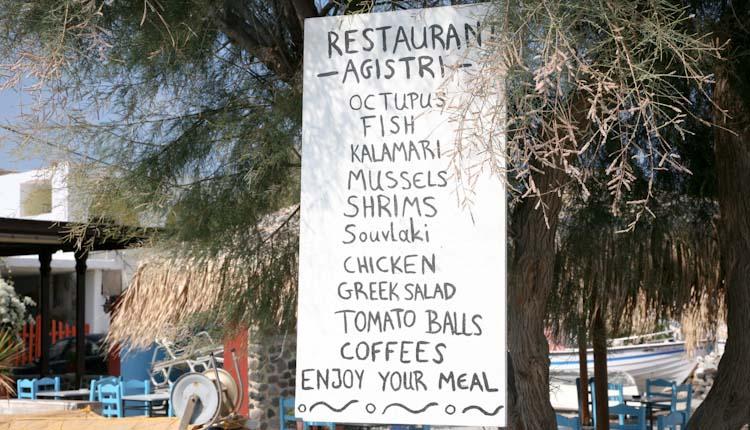 RESTAURANT
— AGISTRI —
OCTUPUS
FISH
KALAMARI
MUSSELS
SHRIMS
Souvlaki
CHICKEN
GREEK SALAD
TOMATO BALLS
COFFEES
ENJOY YOUR MEAL